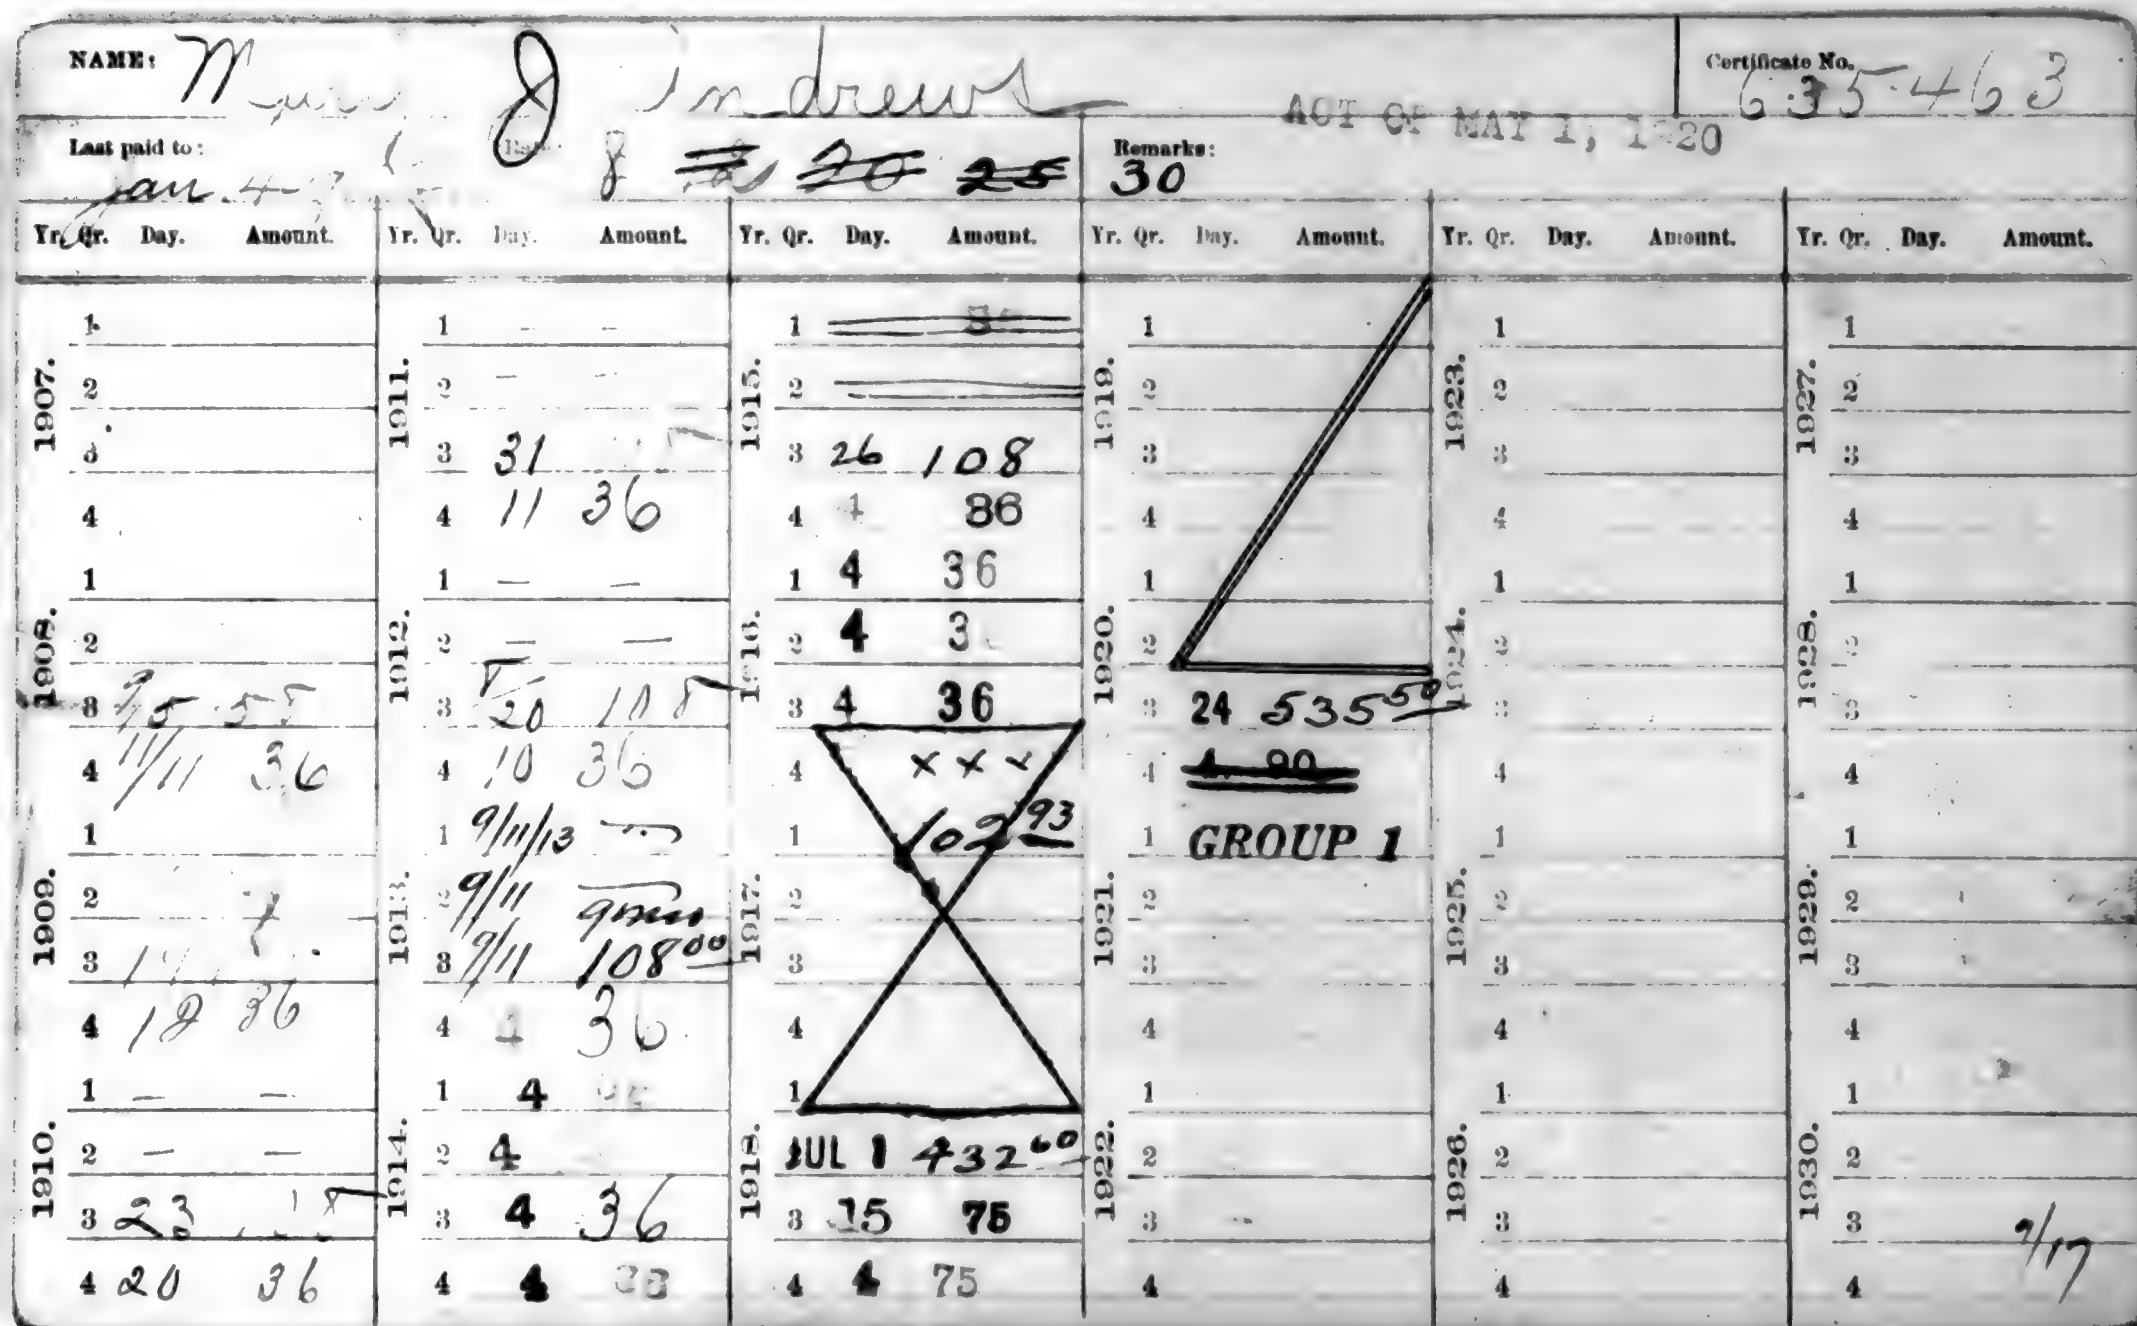 NAME: J Andrews Certificate No. 635463
ACT OF MAY 1, 1920
Last paid to: Jan. 4- Rate: 20 25 Remarks: 30
Yr. Qr. Day. Amount. Yr. Qr. Day. Amount. Yr. Qr. Day. Amount. Yr. Qr. Day. Amount. Yr. Qr. Day. Amount. Yr. Qr. Day. Amount.
1907. 1 1911. 1 - - 1915. 1 1919. 1 1923. 1 1927. 1
2 2 - - 2 2 2 2
3 3 31 3 26 108 3 3 3
4 4 11 36 4 4 36 4 4 4
1908. 1 1912. 1 - - 1916. 1 4 36 1920. 1 1924. 1 1928. 1
2 2 - - 2 4 3 2 2 2
3 3 20 108 3 4 36 3 24 535 50 3 3
4 11/11 36 4 10 36 4 x x x 4 4 4
1909. 1 1913. 1 9/11/13 - 1917. 1 102 93 1921. 1 GROUP 1 1925. 1 1929. 1
2 2 9/11 9mos 2 2 2 2
3 3 9/11 108 00 3 3 3 3
4 18 36 4 4 36 4 4 4 4
1910. 1 - - 1914. 1 4 1918. 1 1922. 1 1926. 1 1930. 1
2 - - 2 4 2 JUL 1 432 60 2 2 2
3 23 3 4 36 3 15 75 3 3 3 9/17
4 20 36 4 4 36 4 4 75 4 4 4